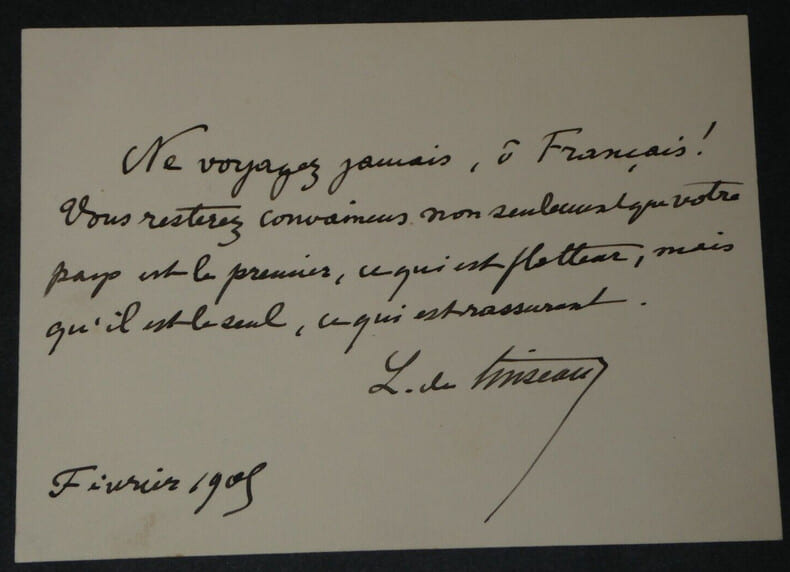 Ne voyagez jamais, ô Français!
Vous resterez convaincus non seulement que votre
pays est le premier, ce qui est flatteur, mais
qu'il est le seul, ce qui est rassurant.
L. de Tinseau
Février 1905